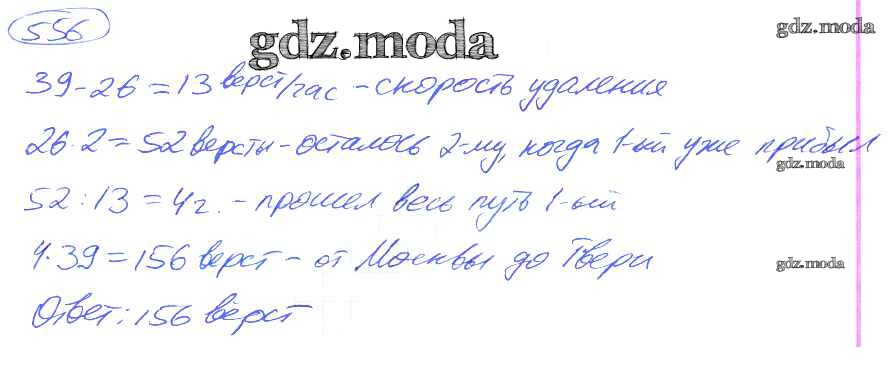 556
gdz.moda
gdz.moda
39-26=13 верст/час - скорость удаления
26·2=52 версты - осталось 2-му, когда 1-ый уже прибыл
gdz.moda
52:13=4г. - прошел весь путь 1-ый
4·39=156 верст - от Москвы до Твери
gdz.moda
Ответ: 156 вёрст